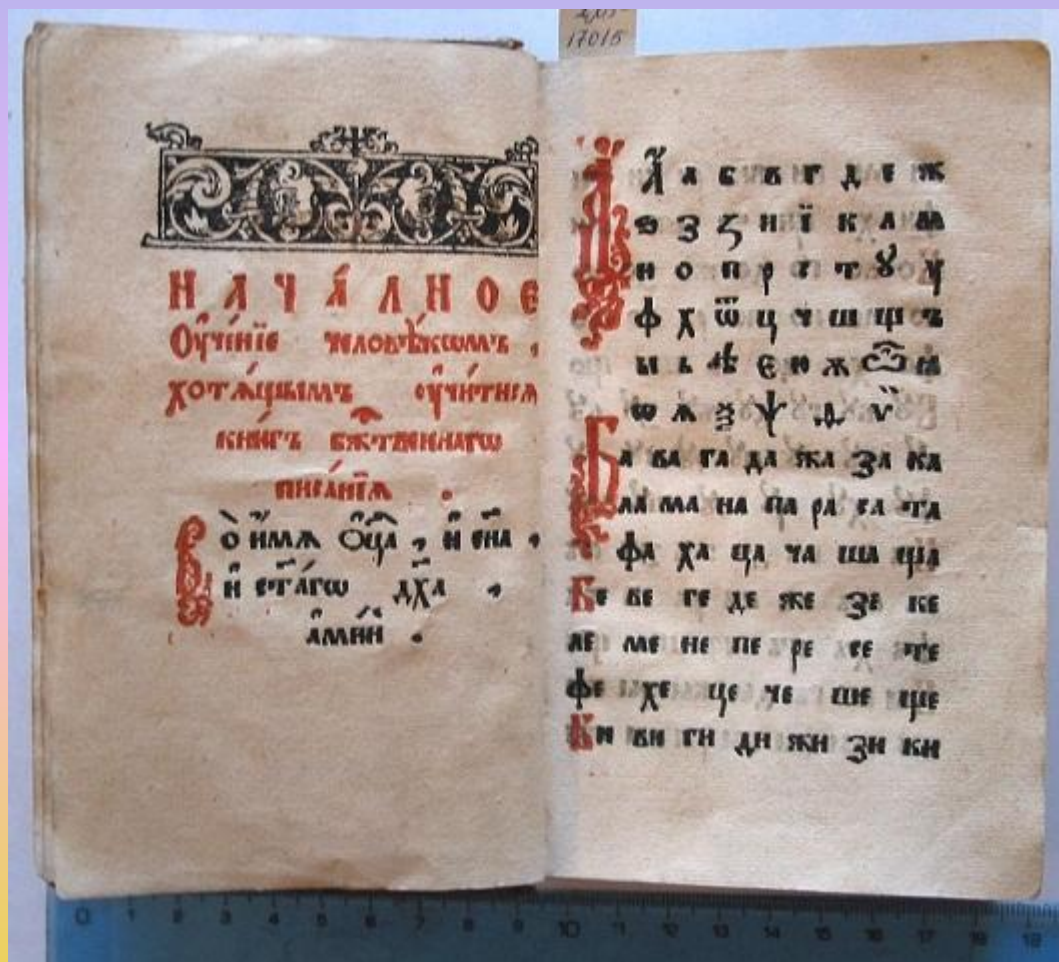 17015
НАЧА́ЛНОЕ
Оу҆че́нїе человѣ́кѡмъ ,
хотѧ́щымъ оу҆чи́тисѧ
кни́гъ бж҃е́ственнагѡ
писа́нїѧ .
Во и҆́мѧ Ѻ҆ц҃а̀ , и҆ сн҃а ,
и҆ ст҃а́гѡ дх҃а ,
а҆ми́нь .
А҆ а б в г д е ж
ѕ з ꙁ и ї к л м
н о п р с т ꙋ у
ф х ѿ ц ч ш щ ъ
ы ь ѣ є ю ѫ ѽ ꙗ
ѡ ѧ ѯ ѱ ѳ ѵ
Ба ва га да жа за ка
ла ма на па ра са та
фа ха ца ча ша ща
Бе ве ге де же зе ке
ле ме не пе ре се те
фе хе це че ше ще
Би ви ги ди жи зи ки
0 1 2 3 4 5 6 7 8 9 10 11 12 13 14 15 16 17 18 19